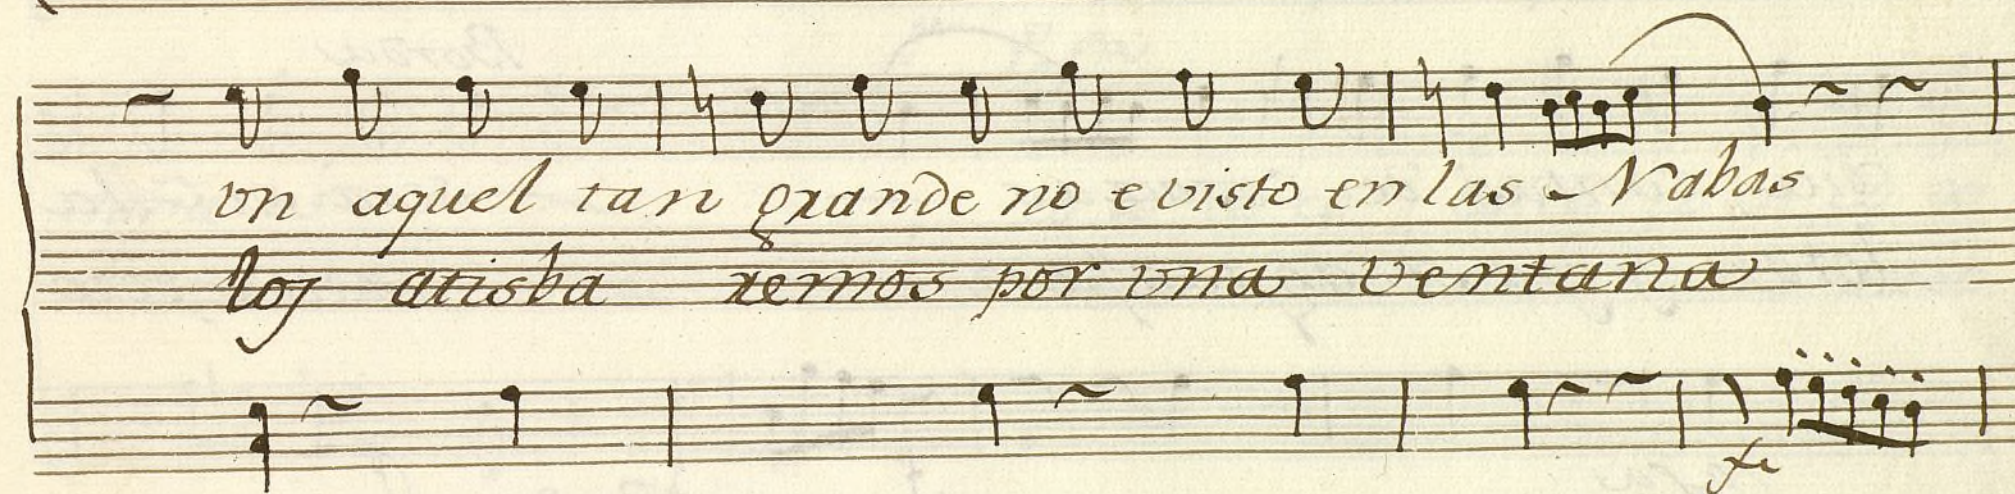 vn aquel tan grande no e visto en las Nabas
los atisba remos por vna ventana